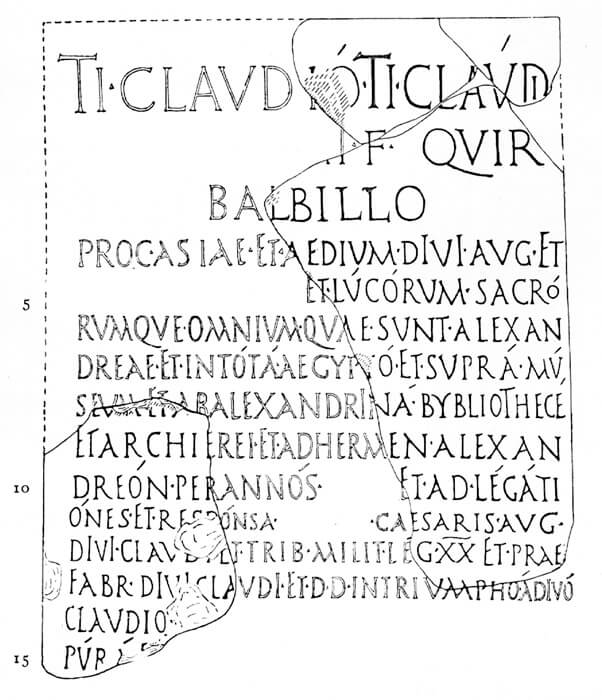 TI·CLAVDIÓ·TI·CLAVDII
I·F· QVIR
BALBILLO
PROC·ASIAE·ET·AEDIVM·DIVI·AVG·ET
5 ET·LÚCÓRVM·SACRÓ
RVMQVE·OMNIVM·QVAE·SVNT·ALEXAN
DREAE·ET·IN·TÓTÁ·AEGYPTÓ·ET·SVPRÁ·MÚ
SEVM·ET·AB·ALEXANDRINÁ·BYBLIOTHECÉ
ET·ARCHIEREI·ET·AD·HERMEN·ALEXAN
10 DREÓN·PER·ANNÓS· ET·AD·LÉGÁTI
ÓNES·ET·RESPÓNSA ·CAESARIS·AVG·
DIVI·CLAVDI·ET·TRIB·MILIT·LÉG·XX·ET·PRAE
FABR·DIVI·CLAVDI·ET·D·D·IN·TRIVMPHO·Á·DIVÓ
CLAVDIO
15 PÚR